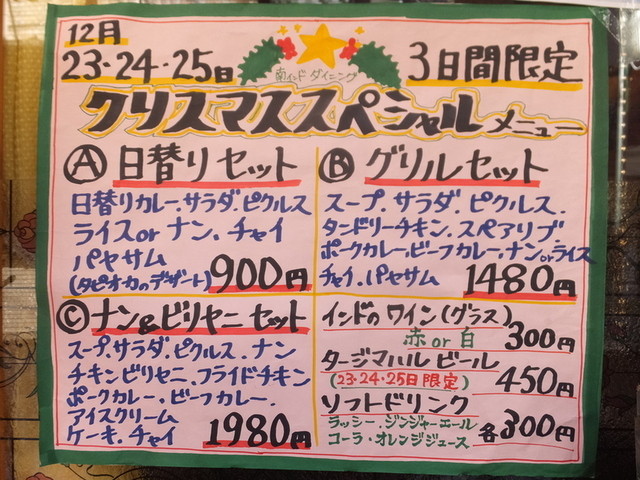 12月
23・24・25日
南インドダイニング
3日間限定
クリスマススペシャルメニュー
Ⓐ日替りセット
日替りカレー、サラダ、ピクルス
ライスorナン、チャイ
パヤサム
(タピオカのデザート) 900円
Ⓑグリルセット
スープ、サラダ、ピクルス、
タンドリーチキン、スペアリブ
ポークカレー、ビーフカレー、ナンorライス
チャイ、パヤサム 1480円
Ⓒナン&ビリヤニセット
スープ、サラダ、ピクルス、ナン
チキンビリセニ、フライドチキン
ポークカレー、ビーフカレー、
アイスクリーム
ケーキ、チャイ 1980円
インドのワイン(グラス)
赤or白 300円
タージマハルビール
(23・24・25日限定) 450円
ソフトドリンク
ラッシー・ジンジャーエール
コーラ・オレンジジュース 各300円